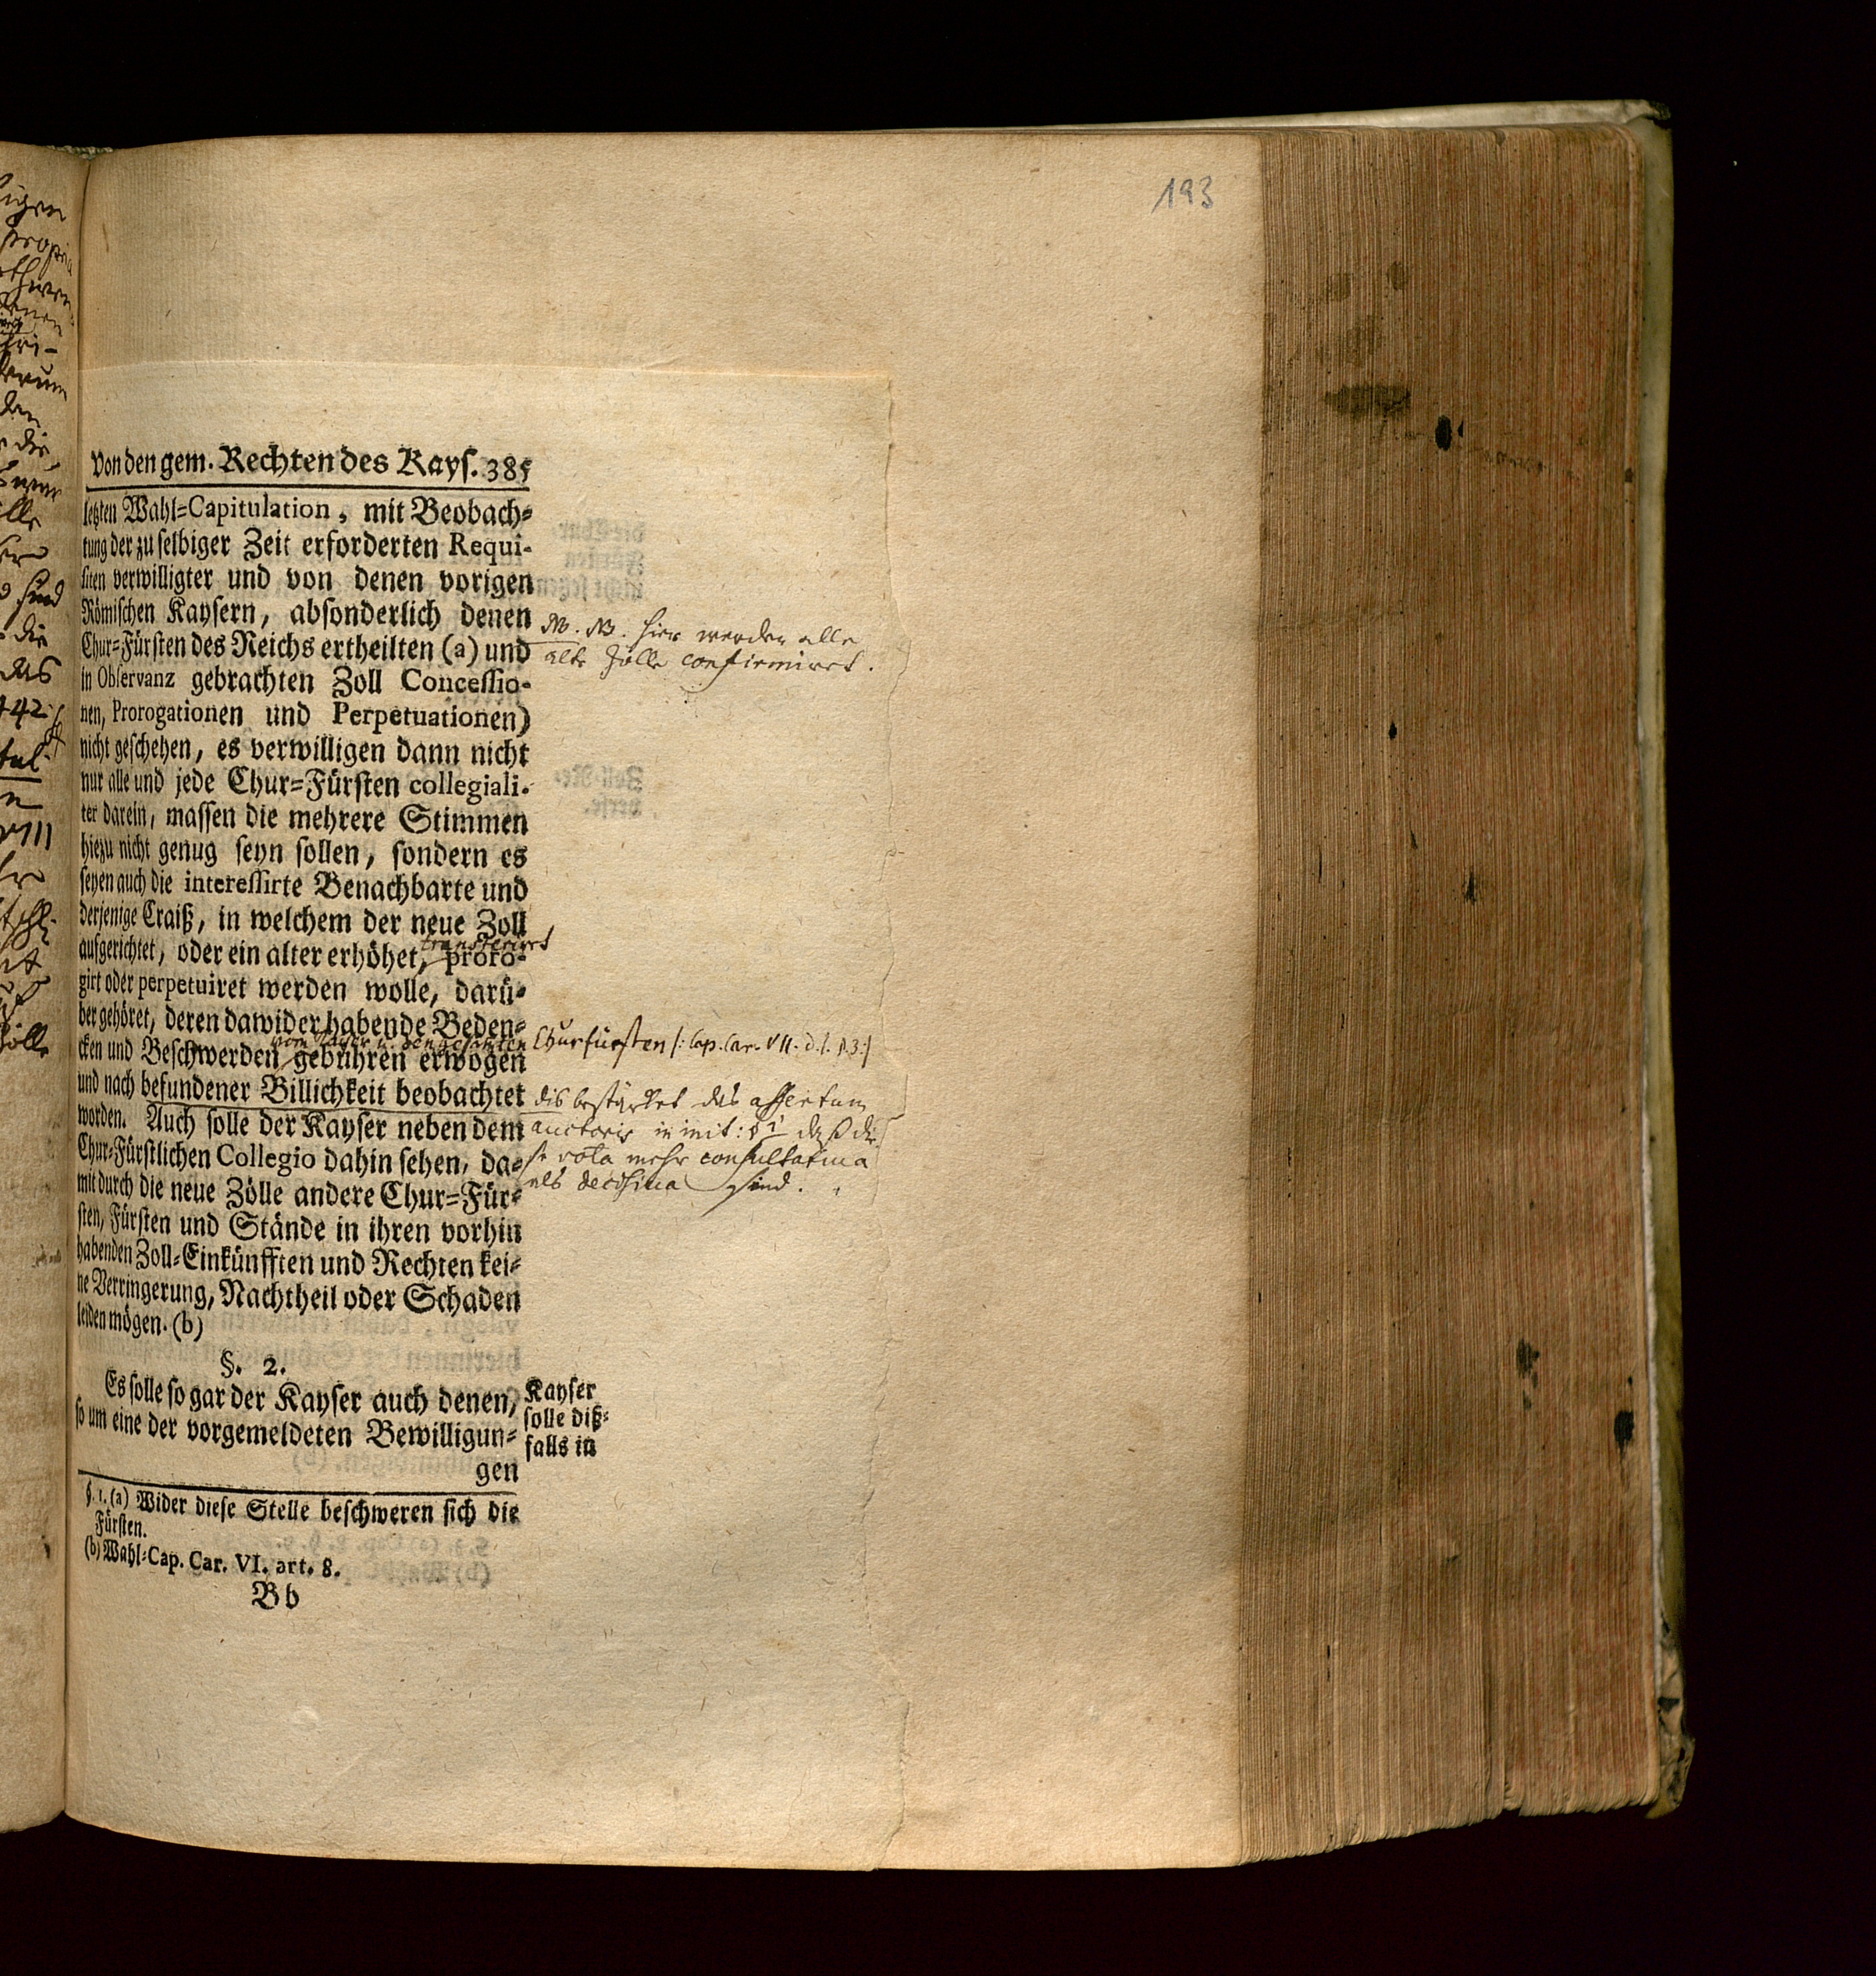 193
Von den gem. Rechten des Kays. 385
letzten Wahl=Capitulation, mit Beobach=
tung der zu selbiger Zeit erforderten Requi-
siten verwilligter und von denen vorigen
Römischen Kaysern, absonderlich denen
Chur=Fürsten des Reichs ertheilten (a) und
in Observanz gebrachten Zoll Concessio-
nen, Prorogationen und Perpetuationen)
nicht geschehen, es verwilligen dann nicht
nur alle und jede Chur=Fürsten collegiali-
ter darein, massen die mehrere Stimmen
hiezu nicht genug seyn sollen, sondern es
seyen auch die interessirte Benachbarte und
derjenige Craiß, in welchem der neue Zoll
transferiret
aufgerichtet, oder ein alter erhöhet, proro-
girt oder perpetuiret werden wolle, darü=
ber gehöret, deren dawider habende Beden=
vom Kayser u. den gesamten Churfürsten /: Cap. Car. VII. d. l. §. 3 :/
cken und Beschwerden gebühren erwogen
und nach befundener Billichkeit beobachtet
worden. Auch solle der Kayser neben dem
Chur=Fürstlichen Collegio dahin sehen, da=
mit durch die neue Zölle andere Chur=Für=
sten, Fürsten und Stände in ihren vorhin
habenden Zoll=Einkünfften und Rechten kei=
ne Verringerung, Nachtheil oder Schaden
leiden mögen. (b)
NB. NB. hier werden alle
alte Zölle confirmiret.
dis bestärket das assertum
auctoris in init: § 1 daß die
se vota mehr consultativa
als decisiva sind.
§. 2.
Es solle so gar der Kayser auch denen,
so um eine der vorgemeldeten Bewilligun=
gen
Kayser
solle diß=
falls in
§. 1. (a) Wider diese Stelle beschweren sich die
Fürsten.
(b) Wahl=Cap. Car. VI. art. 8.
Bb